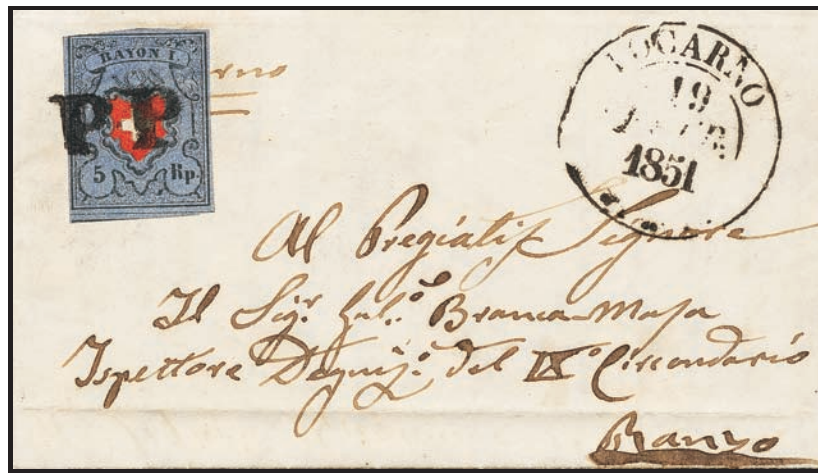 RAYON I.
rno
P P
5 Rp.
LOCARNO
19
1851
Al Pregiatis Signore
Il Sigr. Branca-Masa
Ispettore del IX.º Circondario
Ranzo